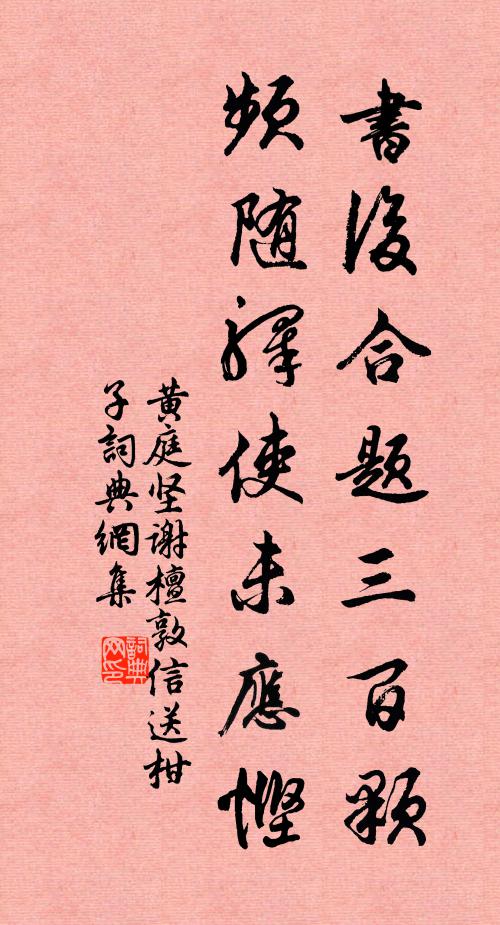 書後合題三百顆
頻随驛使未應慳
黄庭坚谢檀敦信送柑
子詞典網集
詞典网印